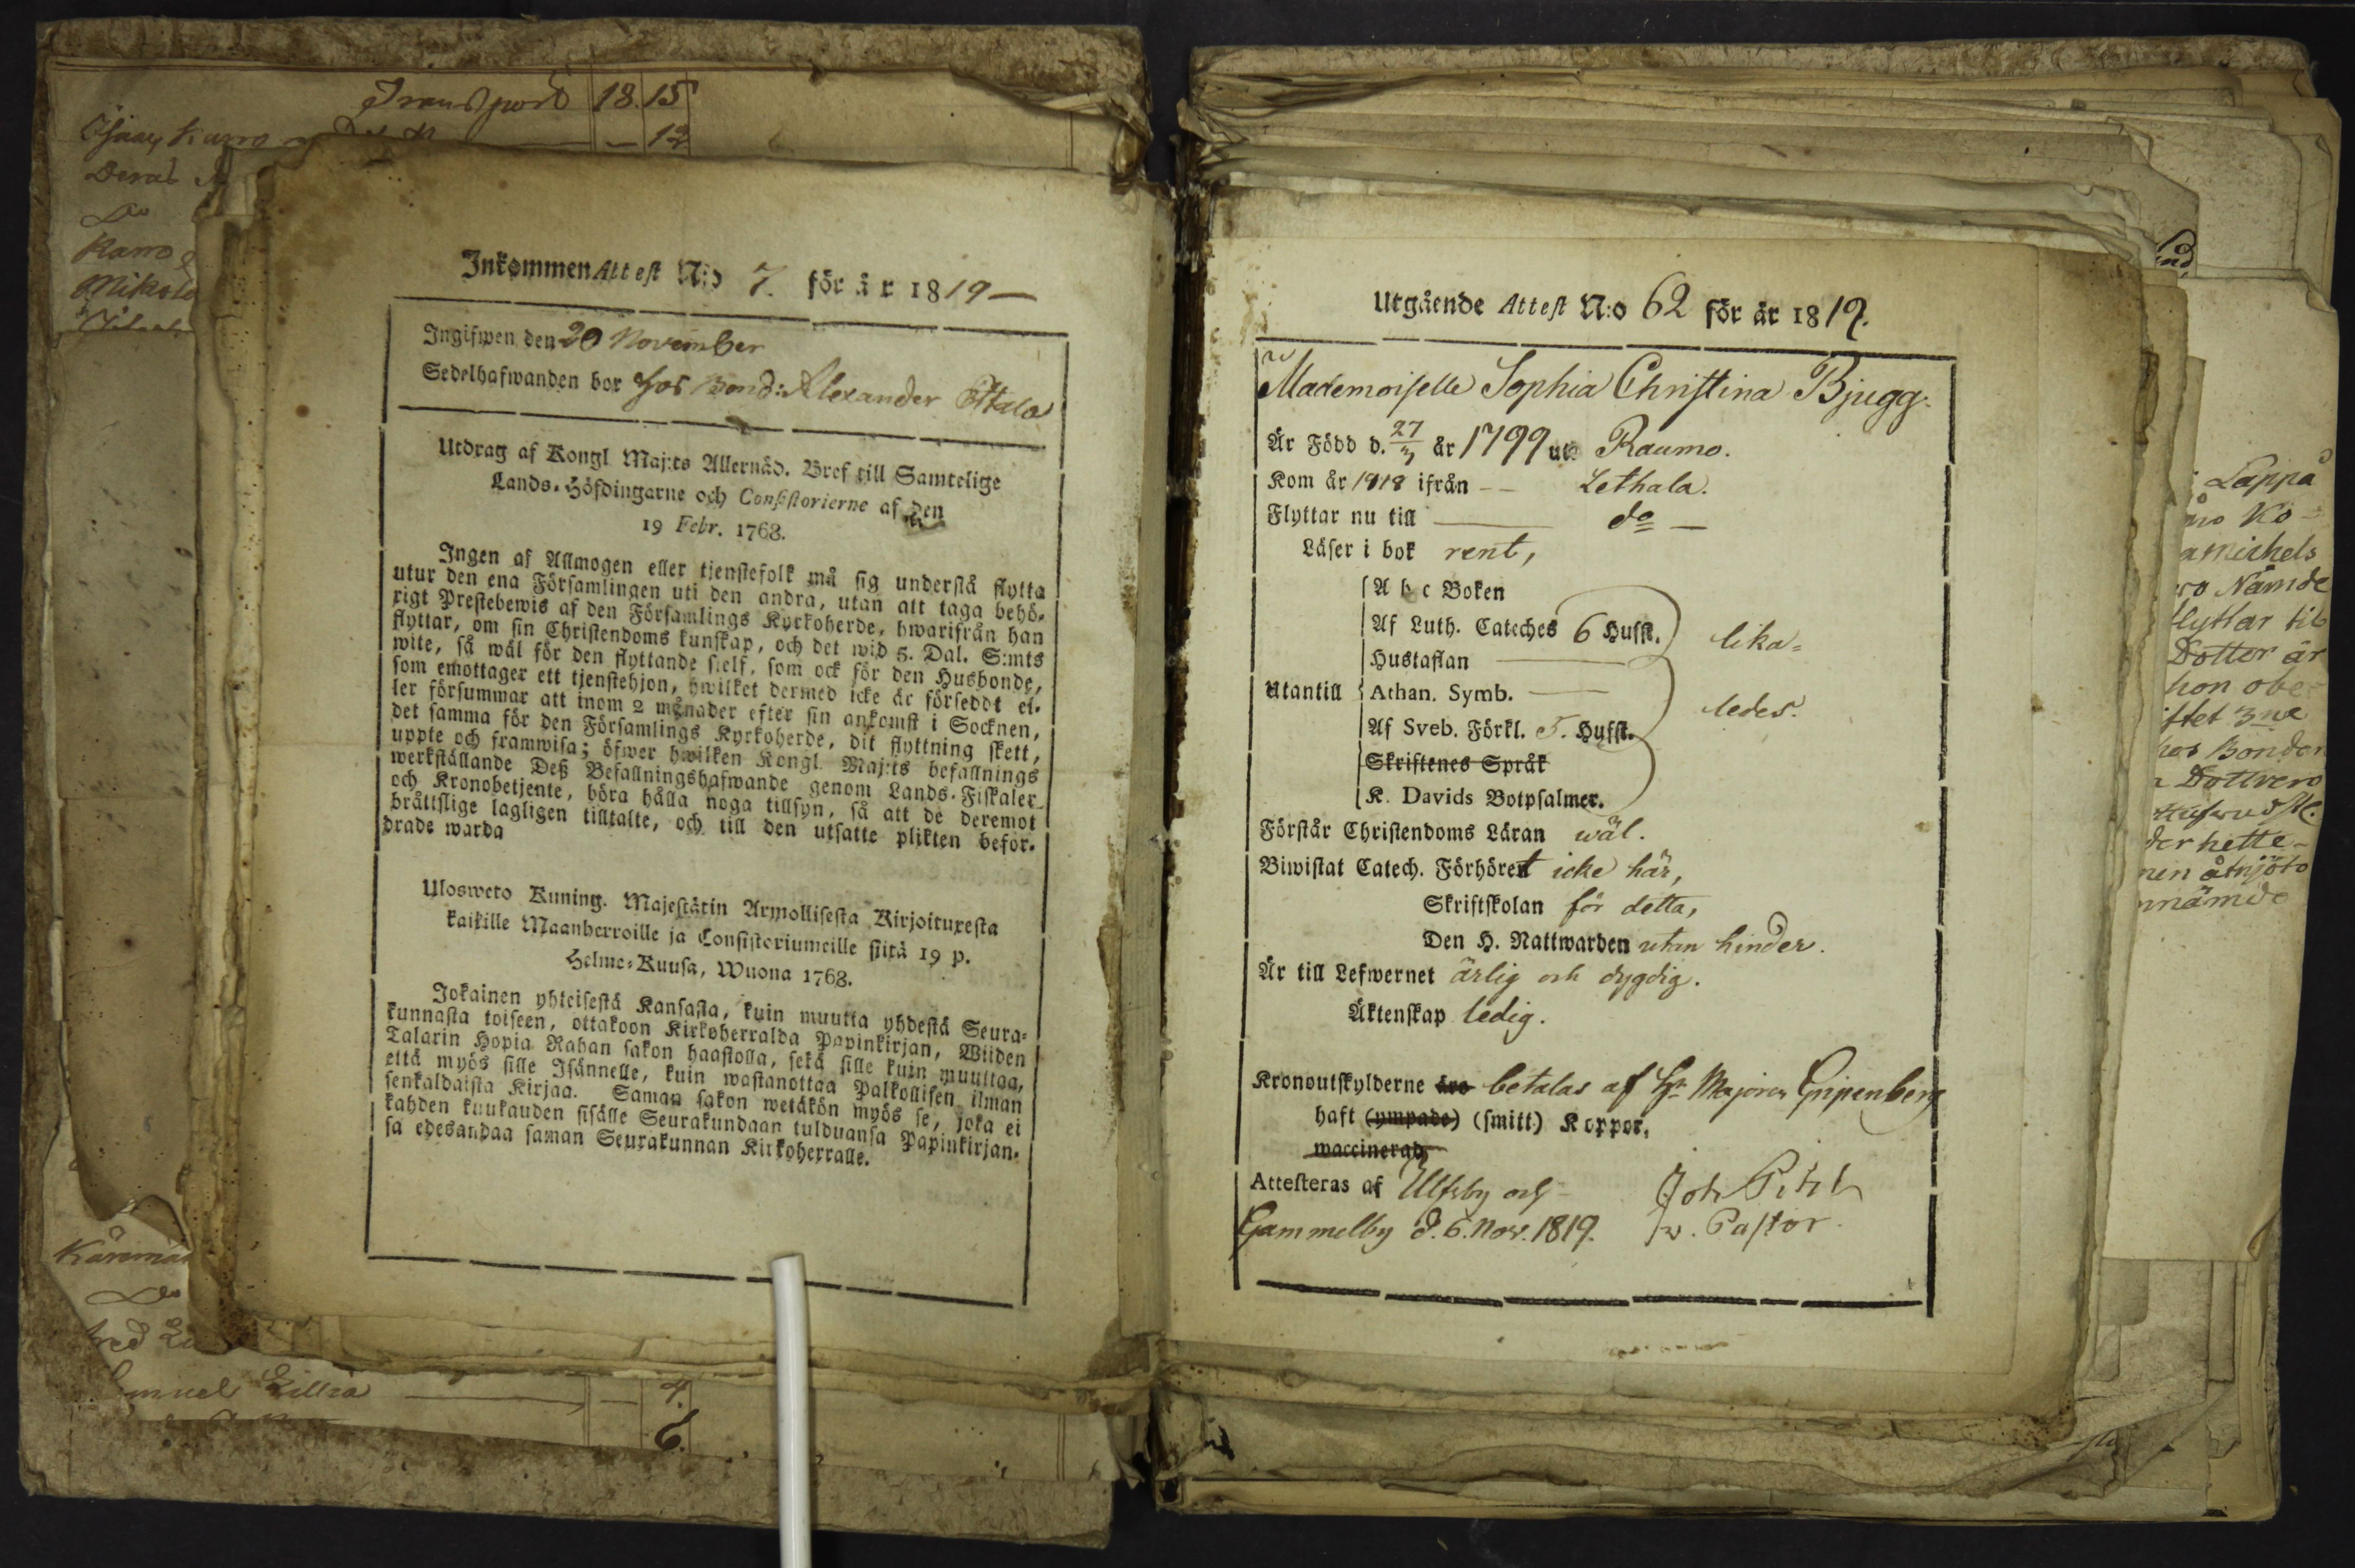 Transport 18. 15
— 12
Inkommen Attest N:o 7. för år 1819 —
Ingifwen den 20 November
Sedelhafwanden bor hos Bond: Alexander
Utdrag af Kongl Maj:ts Allernåd. Bref till Samtelige
Lands-Höfdingarne och Consistorierne af den
19 Febr. 1768.
Ingen af Allmogen eller tjenstefolk må sig understå flytta
utur den ena Församlingen uti den andra, utan att taga behö-
rigt Prestebewis af den Församlings Kyrkoherde, hwarifrån han
flyttar, om sin Christendoms kunskap, och det wid 5. Dal. S:mts
wite, så wäl för den flyttande sielf, som ock för den Husbonde,
som emottager ett tjenstehjon, hwilket dermed icke är förseddt el-
ler försummar att inom 2 månader efter sin ankomst i Socknen,
det samma för den Församlings Kyrkoherde, dit flyttning skett,
uppte och framwisa; öfwer hwilken Kongl. Maj:ts befallnings
werkställande Deß Befallningshafwande genom Lands-Fiskaler
och Kronobetjente, böra hålla noga tillsyn, så att de deremot
bråttslige lagligen tilltalte, och till den utsatte plikten beför-
drade warda
Ulosweto Kuning. Majestätin Armollisesta Kirjoituxesta
kaikille Maanherroille ja Consistoriumeille siitä 19 p.
Helme-Kuusa, Wuona 1768.
Jokainen yhteisestä Kansasta, kuin muutta yhdestä Seura-
kunnasta toiseen, ottakoon Kirkoherralda Papinkirjan, Wiiden
Talarin Hopia Rahan sakon haastolla, sekä sille kuin muuttaa,
että myös sille Isännelle, kuin wastanottaa Palkollisen ilman
senkaldaista Kirjaa. Saman sakon wetäkön myös se, joka ei
kahden kuukauden sisälle Seurakundaan tulduansa Papinkirjan-
sa edesandaa saman Seurakunnan Kirkoherralle.
Samuel — 4.
6.
Utgående Attest N:o 62 för år 1819.
Mademoiselle Sophia Christina Bjugg.
Är Född d. 27/3 år 1799 uti Raumo.
Kom år 1818 ifrån — Lethala.
Flyttar nu till — do —
Läser i bok rent,
A b c Boken
Af Luth. Cateches 6 Hufst. lika-
Hustaflan —
Utantill Athan. Symb. — ledes.
Af Sveb. Förkl. 5. Hufst.
Skriftenes Språk
K. Davids Botpsalmer.
Förstår Christendoms Läran wäl.
Biwistat Catech. Förhöret icke här,
Skriftskolan för detta,
Den H. Nattwarden utan hinder.
Är till Lefwernet ärlig och dygdig.
Äktenskap ledig.
Kronoutskylderne äro betalas af Hr Majoren Gripenberg
haft (ympade) (smitt) Koppor,
waccinerad,
Attesteras af Ulfsby och
Gammelby d. 6. Nov. 1819. v. Pastor.
Lappå
Ko-
amichels
Nämde
flyttar til
Dotter är
hon obe-
iftet 3ne
hos Bonden
Dottrero
der hette-
nen åtnjöto
nämde